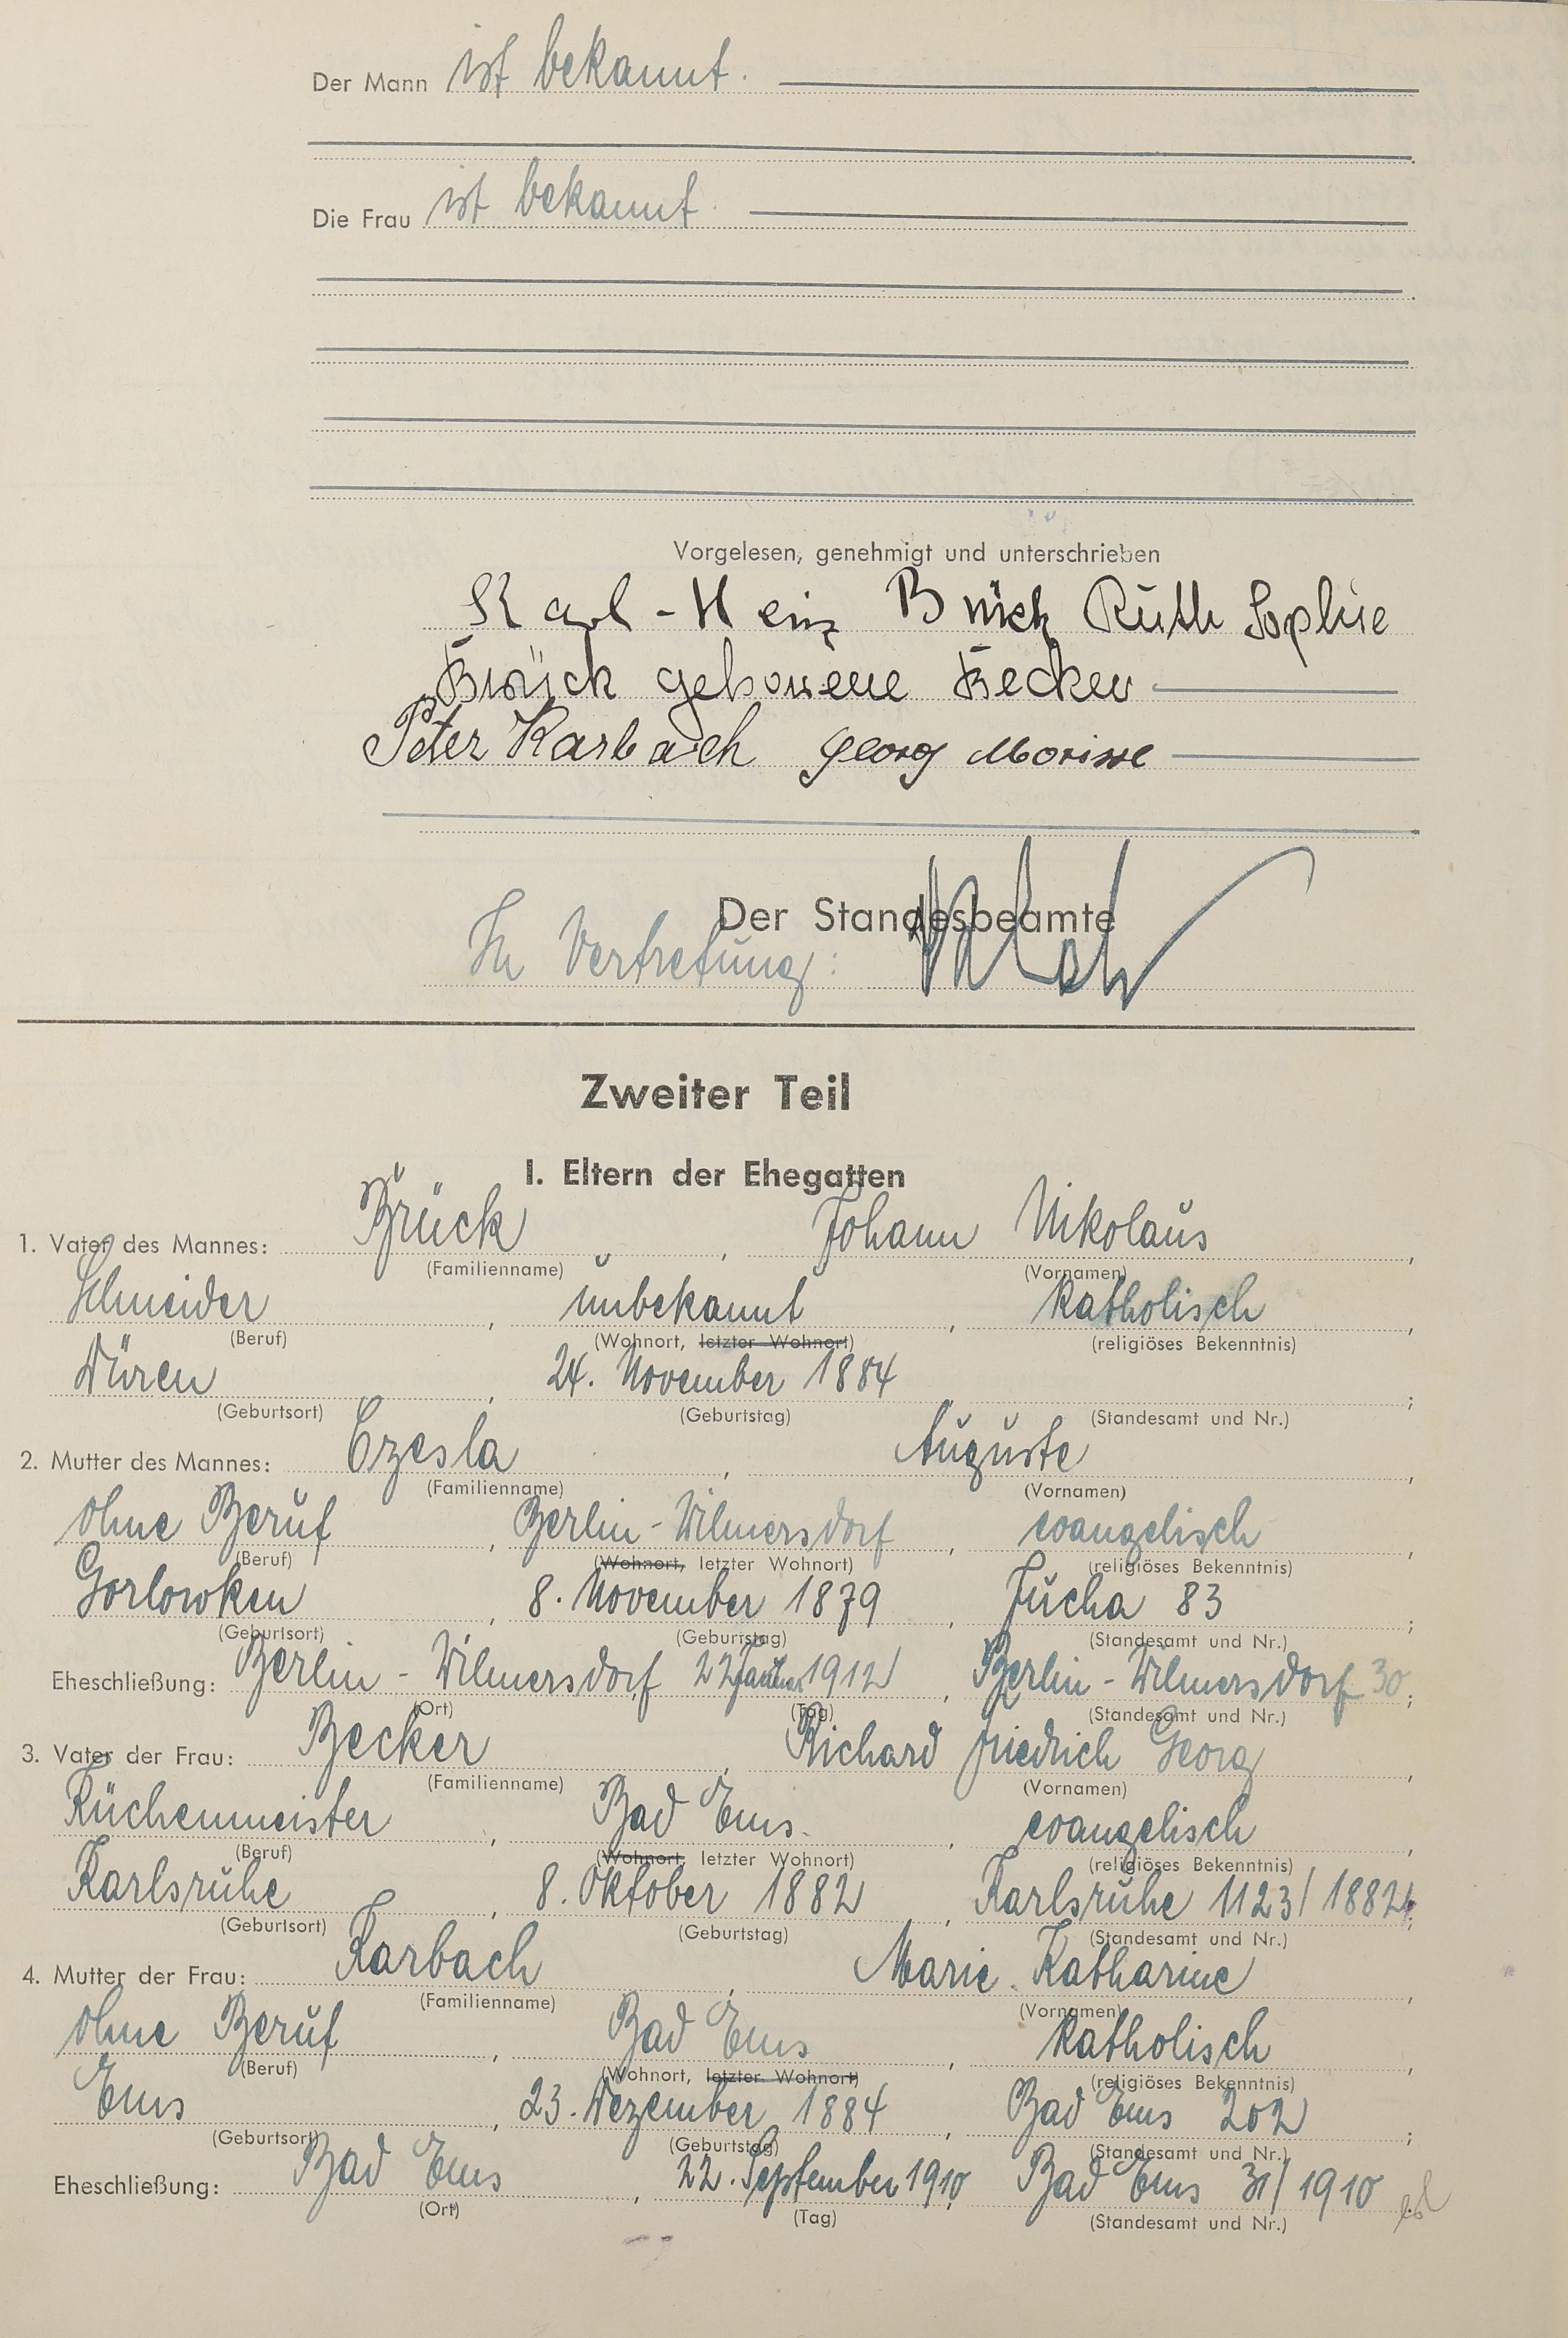 Der Mann ist bekannt.
Die Frau ist bekannt.
Vorgelesen, genehmigt und unterschrieben
Karl-Heinz Brück Ruth Sophie
Brück geborene Becker
Peter Karbach Georg Morisse
Der Standesbeamte
In Vertretung:
Zweiter Teil
I. Eltern der Ehegatten
1. Vater des Mannes: Brück, Johann Nikolaus,
(Familienname) (Vornamen)
Schneider, unbekannt, katholisch,
(Beruf) (Wohnort, letzter Wohnort) (religiöses Bekenntnis)
Düren, 24. November 1884;
(Geburtsort) (Geburtstag) (Standesamt und Nr.)
2. Mutter des Mannes: Czesla, Auguste,
(Familienname) (Vornamen)
ohne Beruf, Berlin-Wilmersdorf, evangelisch,
(Beruf) (Wohnort, letzter Wohnort) (religiöses Bekenntnis)
Gorlowken, 8. November 1879, Jucha 83;
(Geburtsort) (Geburtstag) (Standesamt und Nr.)
Eheschließung: Berlin-Wilmersdorf, 22 Januar 1912, Berlin-Wilmersdorf 30;
(Ort) (Tag) (Standesamt und Nr.)
3. Vater der Frau: Becker, Richard Friedrich Georg,
(Familienname) (Vornamen)
Küchenmeister, Bad Ems, evangelisch,
(Beruf) (Wohnort, letzter Wohnort) (religiöses Bekenntnis)
Karlsruhe, 8. Oktober 1882, Karlsruhe 1123/1882;
(Geburtsort) (Geburtstag) (Standesamt und Nr.)
4. Mutter der Frau: Karbach, Marie Katharine,
(Familienname) (Vornamen)
ohne Beruf, Bad Ems, katholisch,
(Beruf) (Wohnort, letzter Wohnort) (religiöses Bekenntnis)
Ems, 23. Dezember 1884, Bad Ems 202;
(Geburtsort) (Geburtstag) (Standesamt und Nr.)
Eheschließung: Bad Ems, 22. September 1910, Bad Ems 31/1910.
(Ort) (Tag) (Standesamt und Nr.)